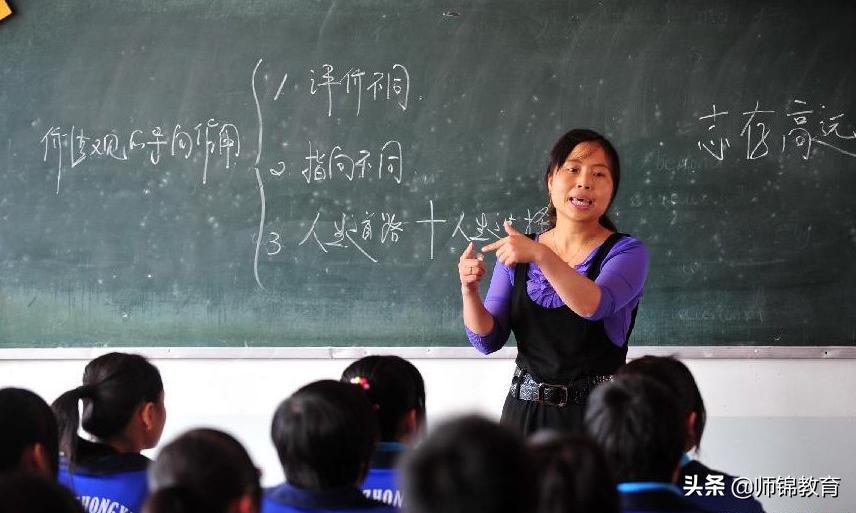 价值观的导向作用
1 评价不同.
2 指向不同.
3 人生道路 十 人生选择
志存高远
ZHONGY
头条 @师锦教育